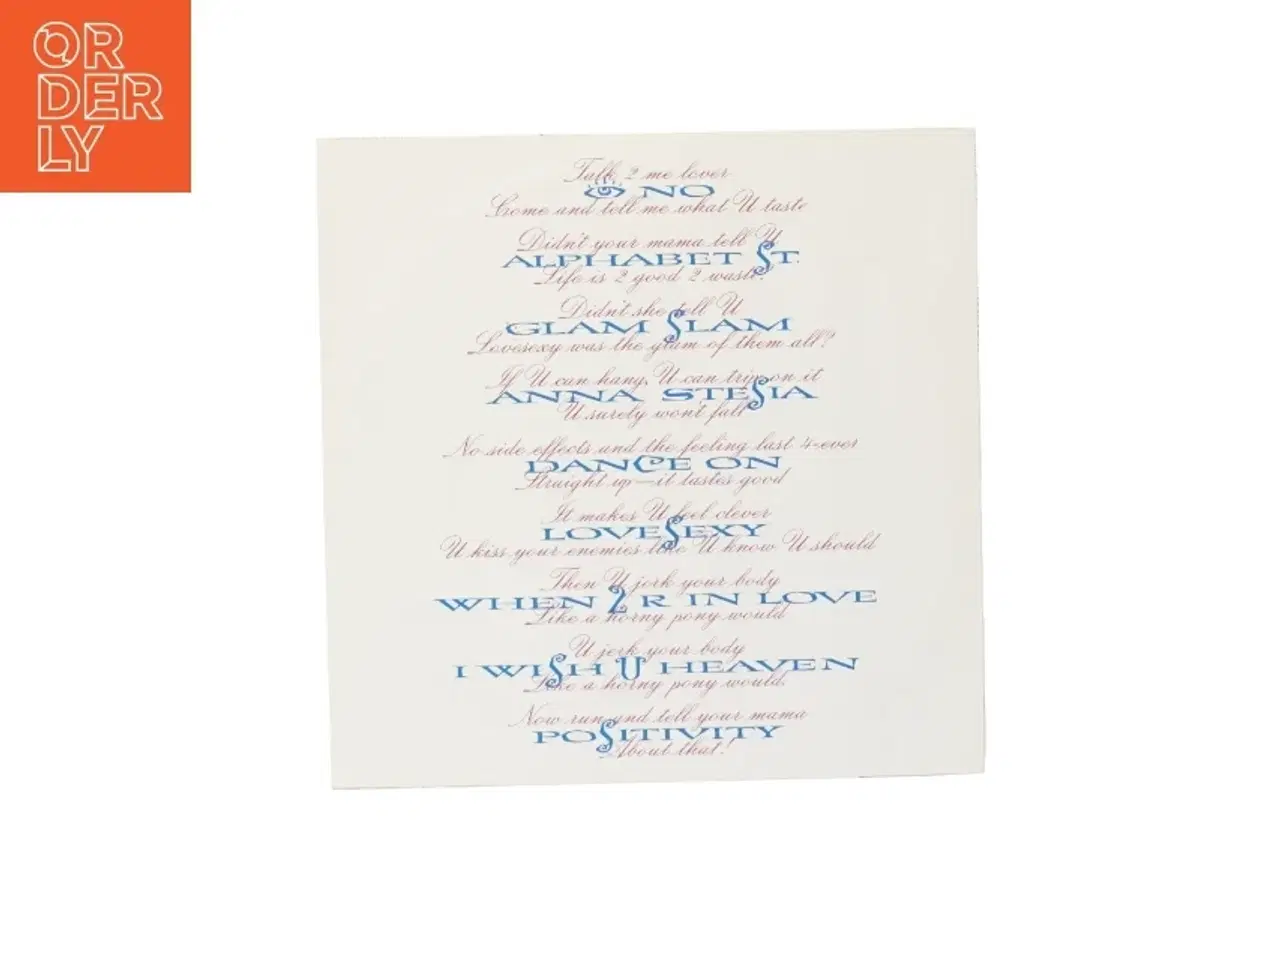 OR
DER
LY
Talk 2 me lover
NO
Come and tell me what U taste
Didn't your mama tell U
ALPHABET ST.
Life is 2 good 2 waste?
Didn't she tell U
GLAM SLAM
Lovesexy was the glam of them all?
If U can hang, U can trip on it
ANNA STESIA
U surely won't fall
No side effects and the feeling last 4-ever
DANCE ON
Straight up—it tastes good
It makes U feel clever
LOVESEXY
U kiss your enemies like U know U should
Then U jerk your body
WHEN 2 R IN LOVE
Like a horny pony would
U jerk your body
I WISH U HEAVEN
Like a horny pony would.
Now run and tell your mama
POSITIVITY
About that!